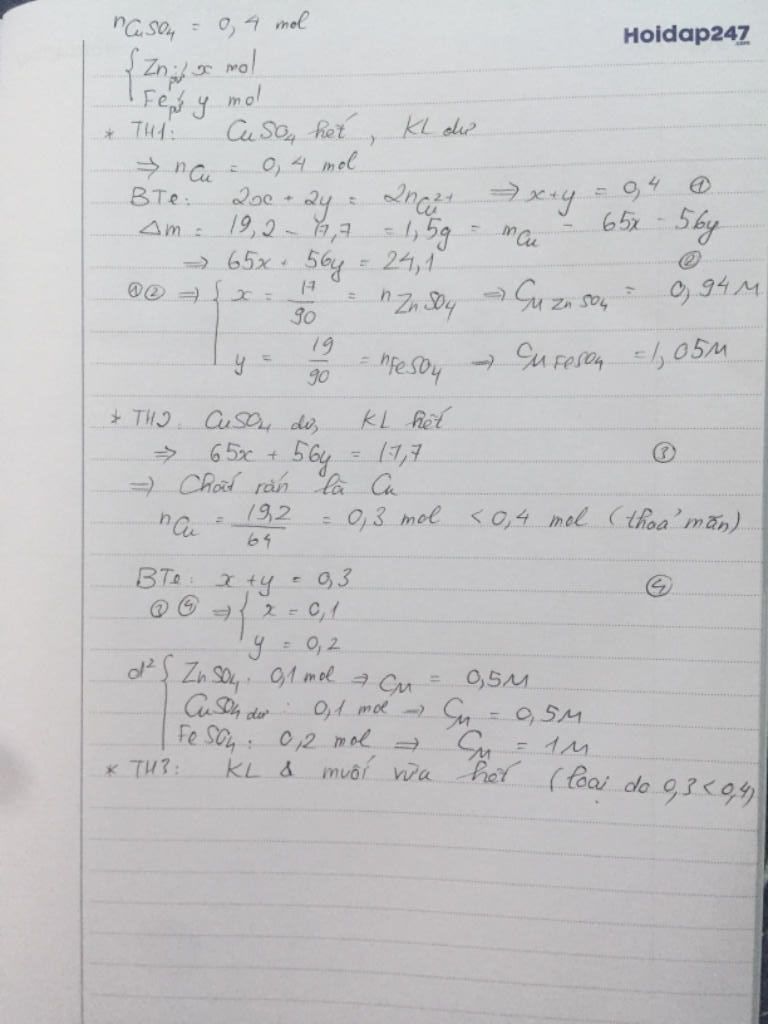 nCuSO4 = 0,4 mol
Hoidap247
.com
{ Zn pứ: x mol
Fe pứ: y mol
* TH1: CuSO4 hết, KL dư
=> nCu = 0,4 mol
BTe: 2x + 2y = 2nCu2+ => x+y = 0,4 ①
Δm = 19,2 - 17,7 = 1,5g = mCu - 65x - 56y
=> 65x + 56y = 24,1 ②
①② => { x = 17/90 = nZnSO4 => CM ZnSO4 = 0,94M
y = 19/90 = nFeSO4 => CM FeSO4 = 1,05M
* TH2: CuSO4 dư, KL hết
=> 65x + 56y = 17,7 ③
=> Chất rắn là Cu
nCu = 19,2/64 = 0,3 mol < 0,4 mol (thoả mãn)
BTe: x+y = 0,3 ④
③④ => { x = 0,1
y = 0,2
d² { ZnSO4: 0,1 mol => CM = 0,5M
CuSO4 dư: 0,1 mol => CM = 0,5M
FeSO4: 0,2 mol => CM = 1M
* TH3: KL & muối vừa hết (loại do 0,3 < 0,4)